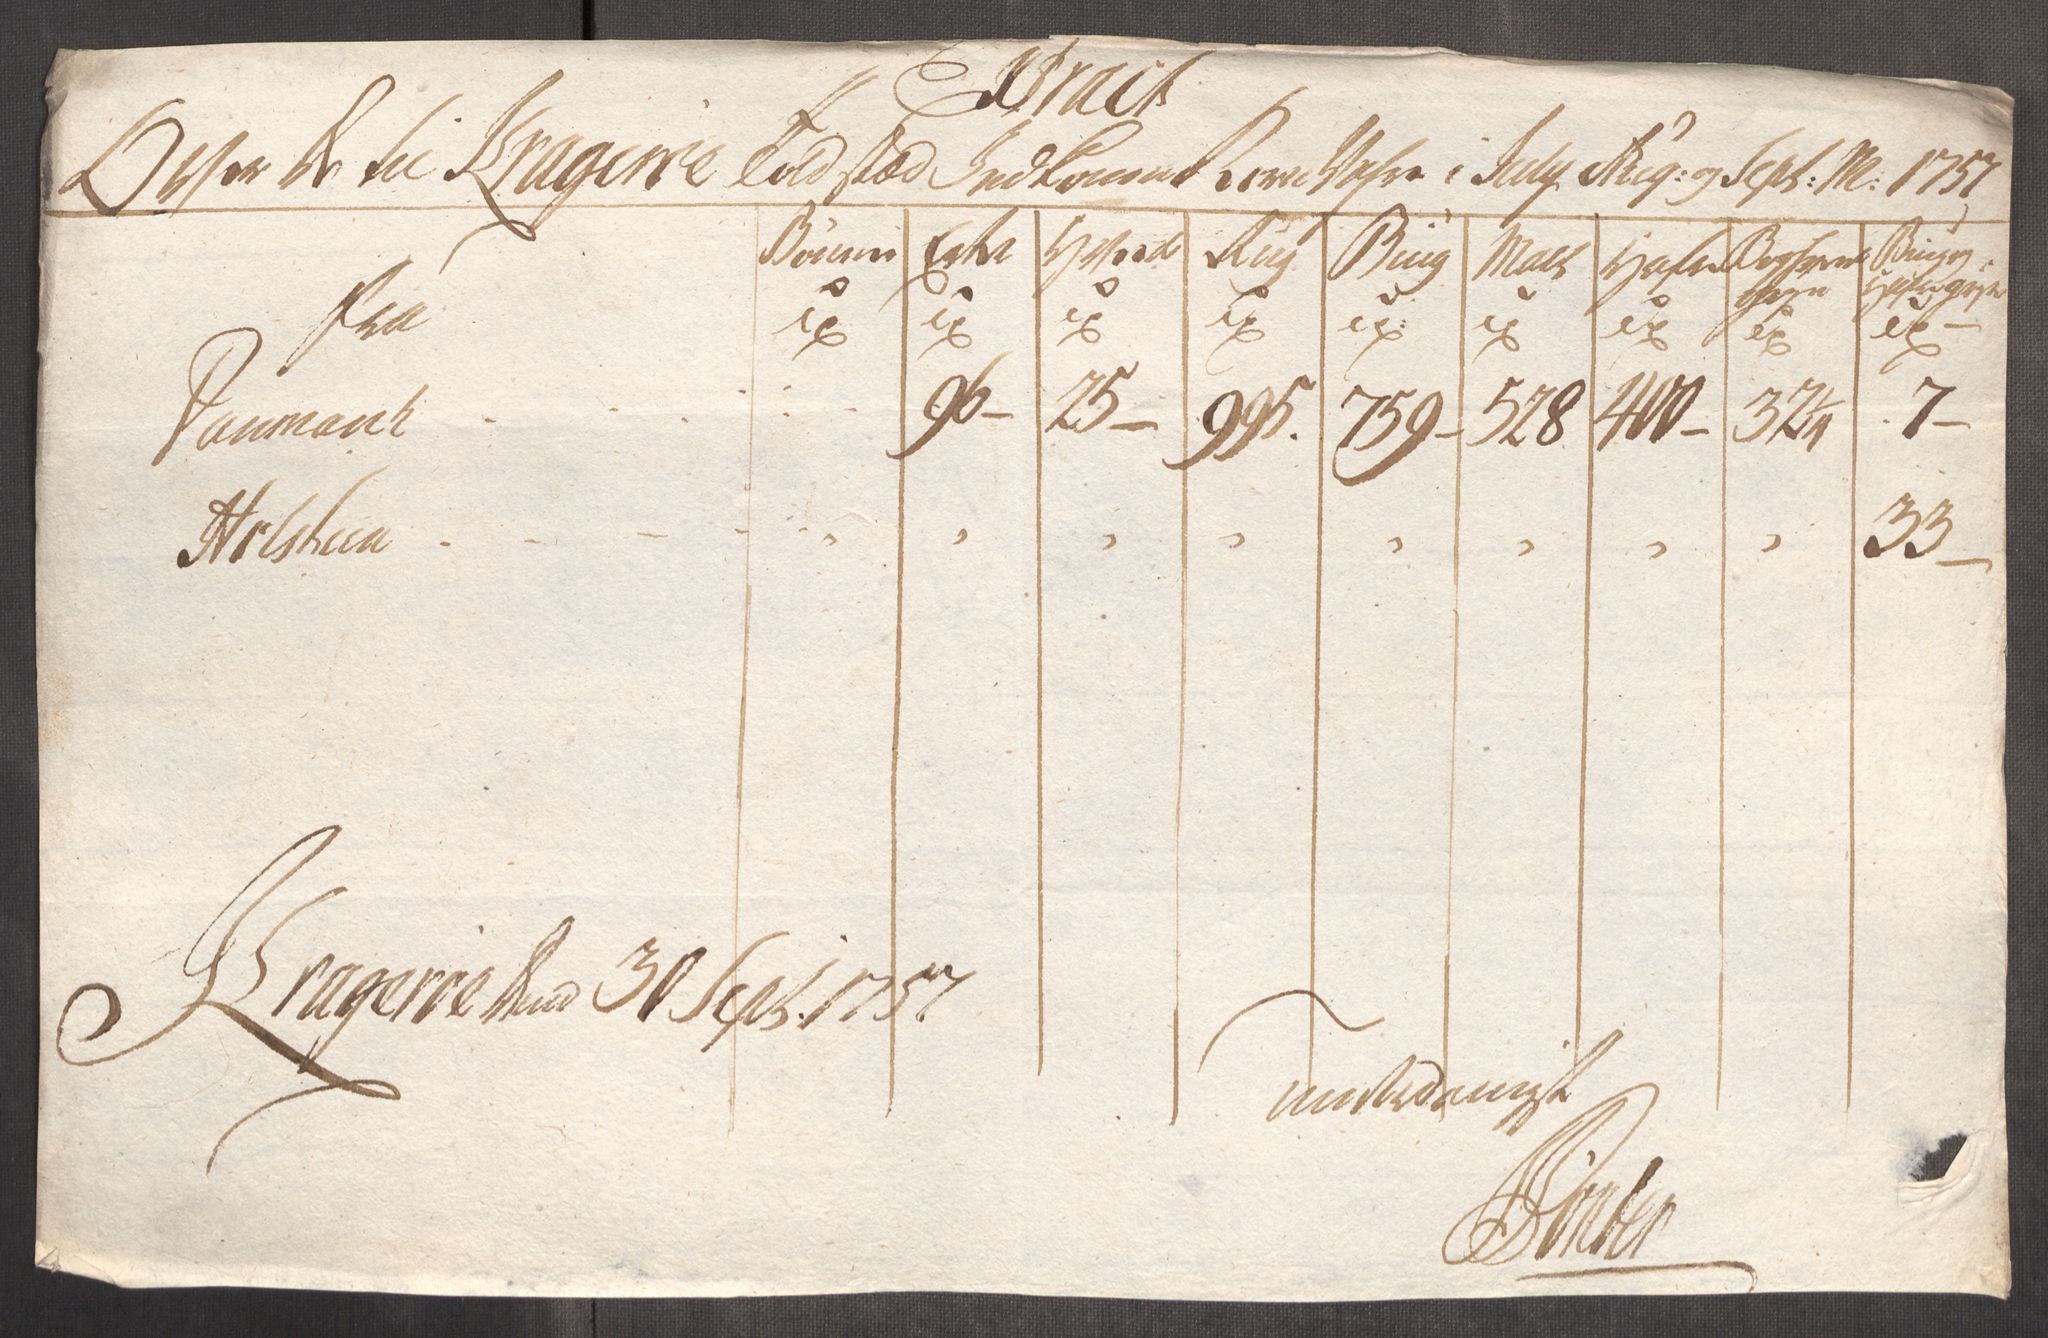 Extract
Over de til Kragerøe Told stæd Indkomne Korn Vahre i July Aug: og Sept: M: 1757
Bønner Erter Hvede Rug Biug Malt Hafre Boghvede gryn Biug og Hafre gryn
fra
Danmark 96 25 995. 759 528 400 32 1/4 7
Holsteen 33
Kragerøe den 30 Sept: 1757.
underdanigst